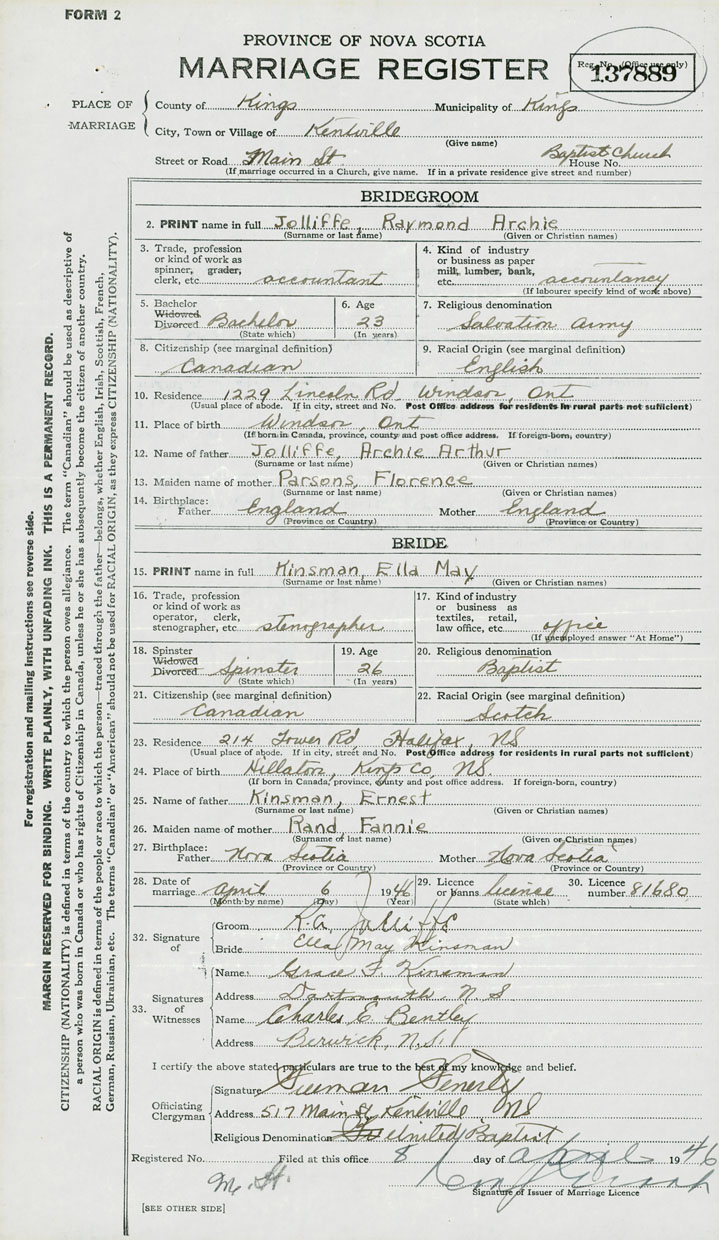 FORM 2
PROVINCE OF NOVA SCOTIA
MARRIAGE REGISTER
Reg. No. (Office use only)
137889
PLACE OF MARRIAGE
County of Kings Municipality of Kings
City, Town or Village of Kentville
(Give name)
Street or Road Main St. Baptist Church House No.
(If marriage occurred in a Church, give name. If in a private residence give street and number)
BRIDEGROOM
2. PRINT name in full Jolliffe, Raymond Archie
(Surname or last name) (Given or Christian names)
3. Trade, profession or kind of work as spinner, grader, clerk, etc. accountant
4. Kind of industry or business as paper mill, lumber, bank, etc. accountancy
(If labourer specify kind of work above)
5. Bachelor Widowed Divorced Bachelor
(State which)
6. Age 23
(In years)
7. Religious denomination Salvation Army
8. Citizenship (see marginal definition) Canadian
9. Racial Origin (see marginal definition) English
10. Residence 1229 Lincoln Rd Windsor, Ont
(Usual place of abode. If in city, street and No. Post Office address for residents in rural parts not sufficient)
11. Place of birth Windsor, Ont
(If born in Canada, province, county and post office address. If foreign-born, country)
12. Name of father Jolliffe, Archie Arthur
(Surname or last name) (Given or Christian names)
13. Maiden name of mother Parsons, Florence
(Surname or last name) (Given or Christian names)
14. Birthplace: Father England Mother England
(Province or Country) (Province or Country)
BRIDE
15. PRINT name in full Kinsman, Ella May
(Surname or last name) (Given or Christian names)
16. Trade, profession or kind of work as operator, clerk, stenographer, etc. stenographer
17. Kind of industry or business as textiles, retail, law office, etc. office
(If unemployed answer "At Home")
18. Spinster Widowed Divorced Spinster
(State which)
19. Age 26
(In years)
20. Religious denomination Baptist
21. Citizenship (see marginal definition) Canadian
22. Racial Origin (see marginal definition) Scotch
23. Residence 214 Tower Rd, Halifax, NS
(Usual place of abode. If in city, street and No. Post Office address for residents in rural parts not sufficient)
24. Place of birth Hillaton, Kings Co, NS.
(If born in Canada, province, county and post office address. If foreign-born, country)
25. Name of father Kinsman, Ernest
(Surname or last name) (Given or Christian names)
26. Maiden name of mother Rand, Fannie
(Surname or last name) (Given or Christian names)
27. Birthplace: Father Nova Scotia Mother Nova Scotia
(Province or Country) (Province or Country)
28. Date of marriage April 6 1946
(Month by name) (Day) (Year)
29. Licence or banns licence
(State which)
30. Licence number 81680
32. Signature of
Groom R.A. Jolliffe
Bride Ella May Kinsman
33. Signatures of Witnesses
Name Grace F. Kinsman
Address Dartmouth, N S
Name Charles E. Bentley
Address Berwick, N.S.
I certify the above stated particulars are true to the best of my knowledge and belief.
Officiating Clergyman
Signature Freeman Fenerty
Address 517 Main St Kentville NS
Religious Denomination United Baptist
Registered No. Filed at this office 8 day of April 1946
Signature of Issuer of Marriage Licence
[SEE OTHER SIDE]
For registration and mailing instructions see reverse side.
MARGIN RESERVED FOR BINDING. WRITE PLAINLY, WITH UNFADING INK. THIS IS A PERMANENT RECORD.
CITIZENSHIP (NATIONALITY) is defined in terms of the country to which the person owes allegiance. The term "Canadian" should be used as descriptive of
a person who was born in Canada or who has rights of Citizenship in Canada, unless he or she has subsequently become the citizen of another country.
RACIAL ORIGIN is defined in terms of the people or race to which the person—traced through the father—belongs, whether English, Irish, Scottish, French,
German, Russian, Ukrainian, etc. The terms "Canadian" or "American" should not be used for RACIAL ORIGIN, as they express CITIZENSHIP (NATIONALITY).